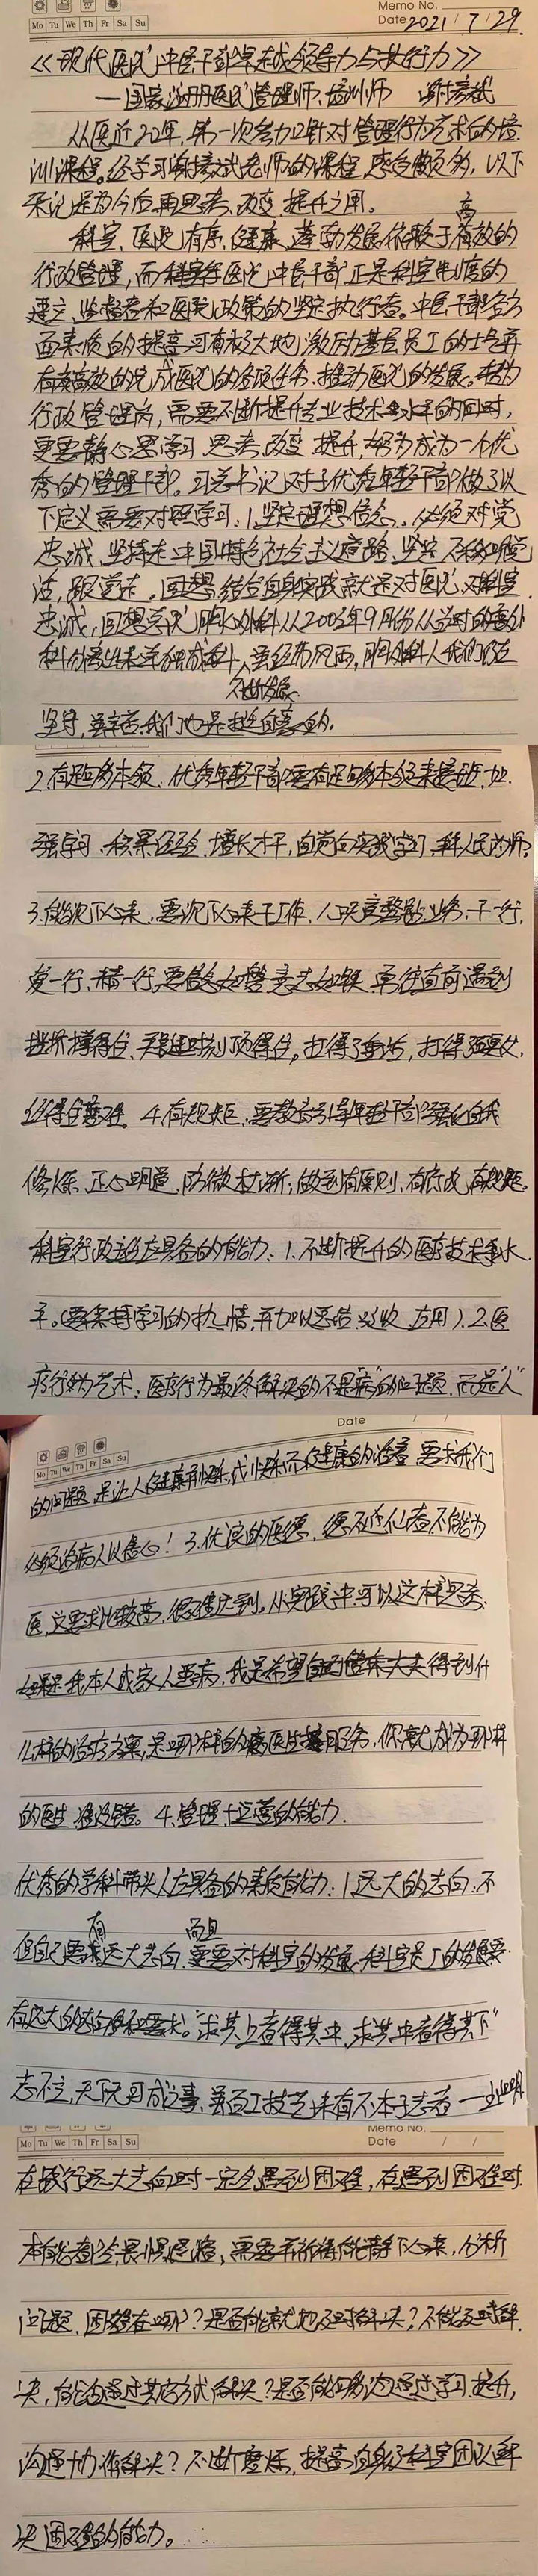 Memo No.
Mo Tu We Th Fr Sa Su
Date 2021 / 7 / 29.
《现代医院中层干部卓越领导力与执行力》
—国家注册医院管理师、培训师
从医近20年,第一次参加针对管理行为艺术的培
训课程。经学习谢老师的课程,感受颇多,以下
笔记是为今后再思考、改变、提升之用。
科室、医院有序、健康、蓬勃发展依赖于高效的
行政管理,而医院中层干部正是科室制度的
建立、监督者和医院政策的坚定执行者。中层干部各方
面素质的提高可有极大地激励基层员工的士气并
有效高效的完成医院的各项任务,推动医院的发展。作为
行政管理岗,需要不断提升专业技术水平的同时,
更要静心思学习、思考、改变、提升,努力成为一个优
秀的管理干部。习总书记对于优秀年轻干部做了以
下定义需要对照学习:1.坚定理想信念。必须对党
忠诚,坚持走中国特色社会主义道路,坚定不移听党
话,跟党走。回想结合自身实践就是对医院、对科室
忠诚,回想总院胸心外科从2003年9月份从当时的
科分离出来单独成科,虽经历风雨,胸外科人我们仍在
不断发展
坚守,虽辛苦,我们也是自豪的。
2.有足够本领。优秀年轻干部要有足够本领来接班,加
强学习、积累经验、增长才干,自觉向实践学习、拜人民为师。
3.能沉下心来,要沉下心来干工作,心无旁骛钻业务,干一行,
爱一行,精一行。要信念如磐、意志如铁、勇往直前,遇到
挫折撑得住,关键时刻顶得住,扛得了重活,打得了硬仗,
经得住磨难。4.有规矩,要教育引导年轻干部强化自我
修炼、正心明道、防微杜渐,做到有原则、有底线、有规矩。
科室行政主任应具备的能力:1.不断提升的医疗技术水
平。(要保持学习的热情,并加以总结、吸收、应用)。2.医
疗行为艺术:医疗行为最终解决的不是“病”的问题,而是“人”
Date / /
Mo Tu We Th Fr Sa Su
的问题,是让人健康和快乐,或快乐而健康的活着,要求我们
必须治病人以虚心!3.优良的医德,德不近仙者不能为
医,这要求比较高,很难达到。从实践中可以这样思考,
如果是我本人或家人患病,我是希望得到什
么样的治疗方案,是哪样的医生服务,你就成为那样
的医生准没错。4.管理+运营的能力。
优秀的学科带头人应具备的素质能力:1.远大的志向:不
但自己要有远大志向,而且更要对科室的发展、科室员工的发展要
有远大的志向和要求。“求其上者得其中,求其中者得其下”
志不立,天下无可成之事,虽百工技艺,未有不本于志者——王阳明
Mo Tu We Th Fr Sa Su
Memo No.
Date / /
在践行远大志向时一定会遇到困难,在遇到困难时
本能都会畏惧退缩,需要静下心来,分析
问题,困难在哪?是否能就地及时解决?不能及时解
决,能否通过其它方式解决?是否能够通过学习提升,
沟通协作解决?不断磨炼,提高自身及科室团队解
决困难的能力。